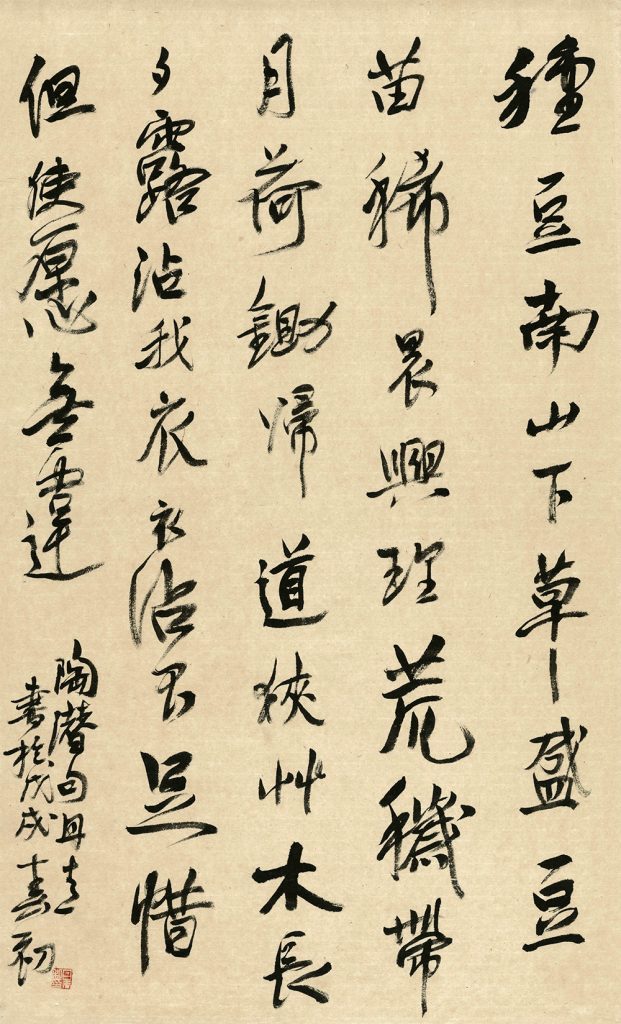 種豆南山下草盛豆
苗稀晨興理荒穢帶
月荷鋤帰道狹艸木長
夕露沾我衣衣沾不足惜
但使愿無違
陶潛句
書於戊戌春初